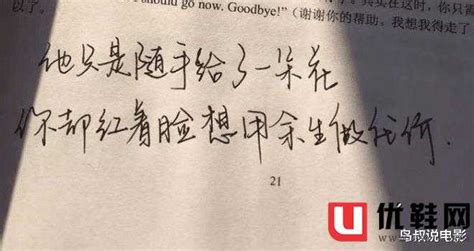 I should go now. Goodbye!"(谢谢你的帮助。我想我得走了
以了。
他只是随手给了一朵花
你却红着脸想用余生做代价.
21
U 优鞋网
鸟叔说电影